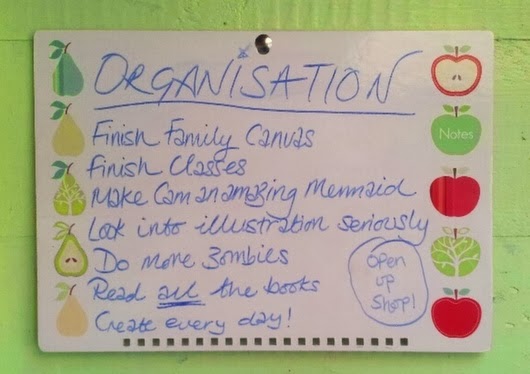 ORGANISATION
Notes
Finish Family Canvas
Finish Classes
Make Cam an amazing Mermaid
Look into illustration seriously
Do more zombies
Read all the books
Create every day!
Open
up
Shop!